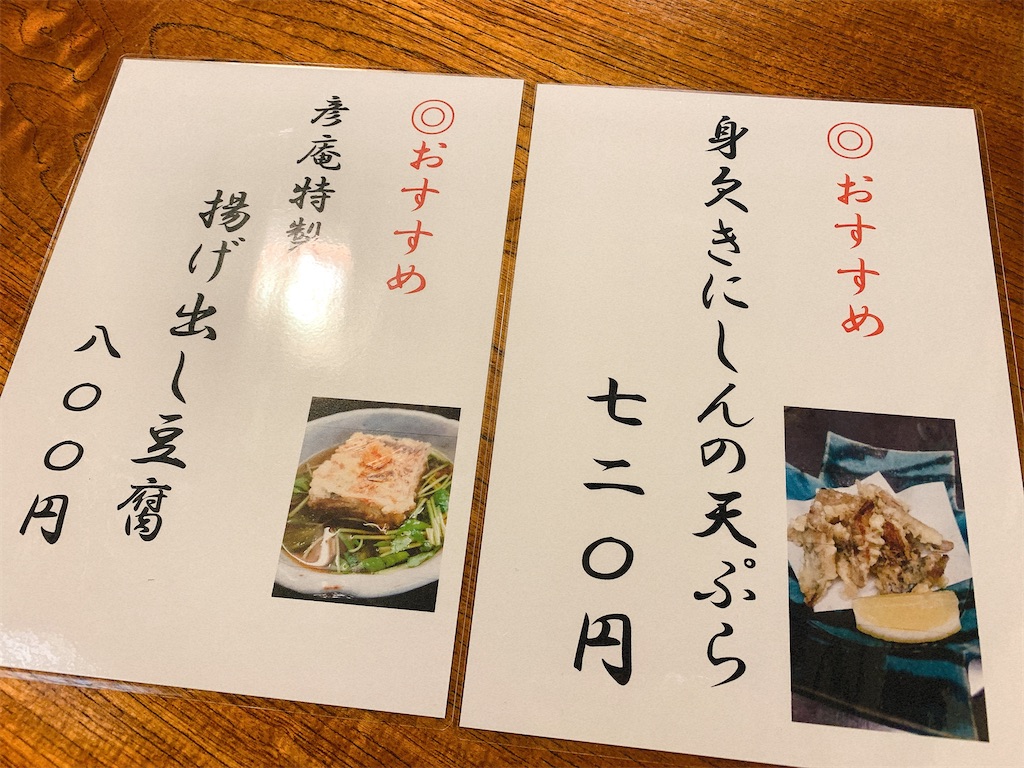 ◎おすすめ
身欠きにしんの天ぷら
七二〇円
◎おすすめ
彦庵特製
揚げ出し豆腐
八〇〇円